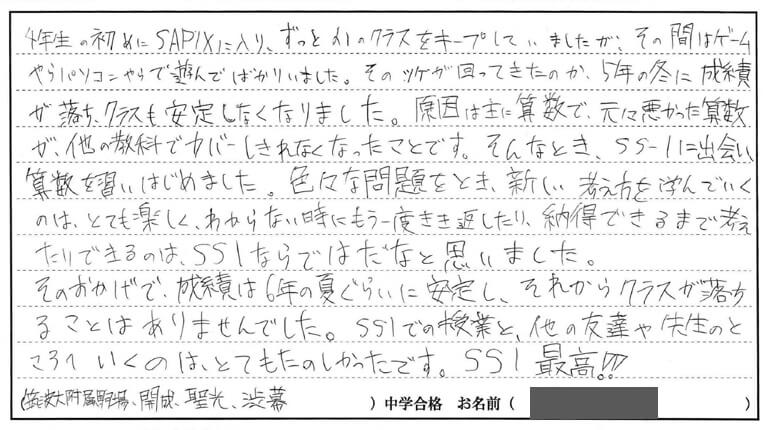 4年生の初めにSAPIXに入り、ずっとα1のクラスをキープしていましたが、その間はゲーム
やらパソコンやらで遊んでばかりいました。そのツケが回ってきたのか、5年の冬に成績
が落ち、クラスも安定しなくなりました。原因は主に算数で、元々悪かった算数
が、他の教科でカバーしきれなくなったことです。そんなとき、SS-1に出会い、
算数を習いはじめました。色々な問題をとき、新しい考え方を学んでいく
のは、とても楽しく、わからない時にもう一度きき返したり、納得できるまで考え
たりできるのは、SS1ならではだなと思いました。
そのおかげで、成績は6年の夏ぐらいに安定し、それからクラスが落ち
ることはありませんでした。SS1での授業と、他の友達や先生のと
ころへいくのは、とてもたのしかったです。SS1最高!!!
(筑波大附属駒場、開成、聖光、渋幕 )中学合格 お名前( )